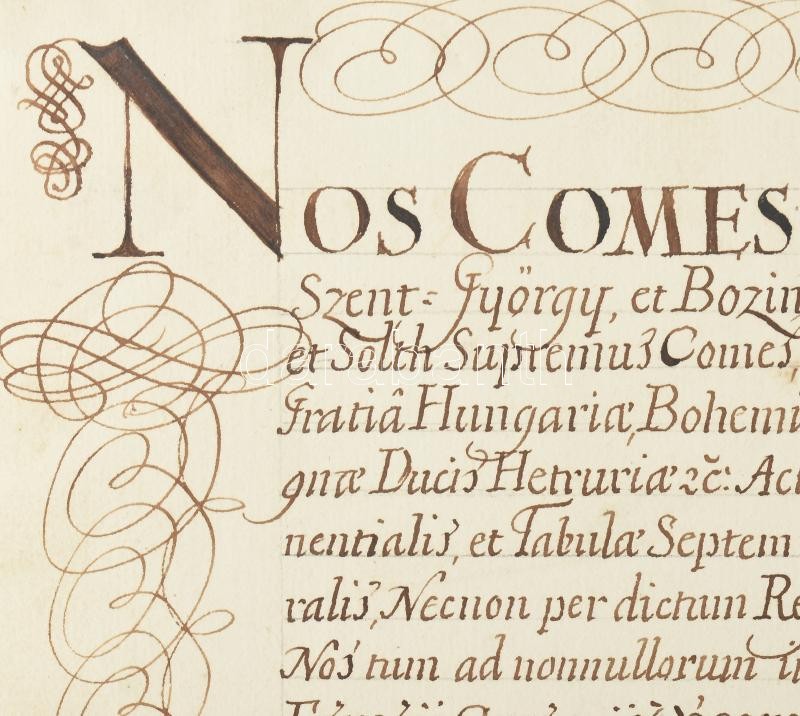 NOS COMES
Szent-György, et Bozin
et Solth Supremus Comes,
Gratiâ Hungariæ, Bohemi
gnæ Ducis Hetruriæ &c: Act
nentialis, et Tabulæ Septem
ralis, Necnon per dictum Re
Nos tum ad nonnullorum
darabanth